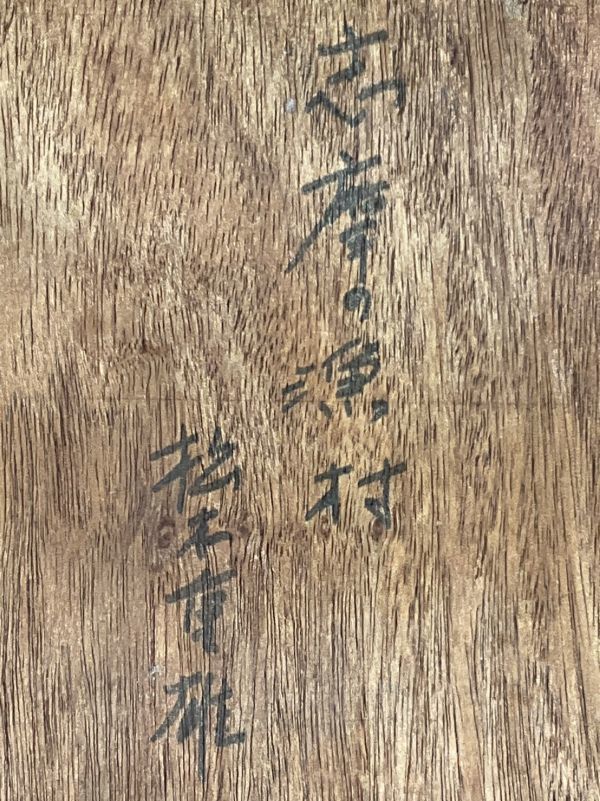 志摩の漁村
松木重雄